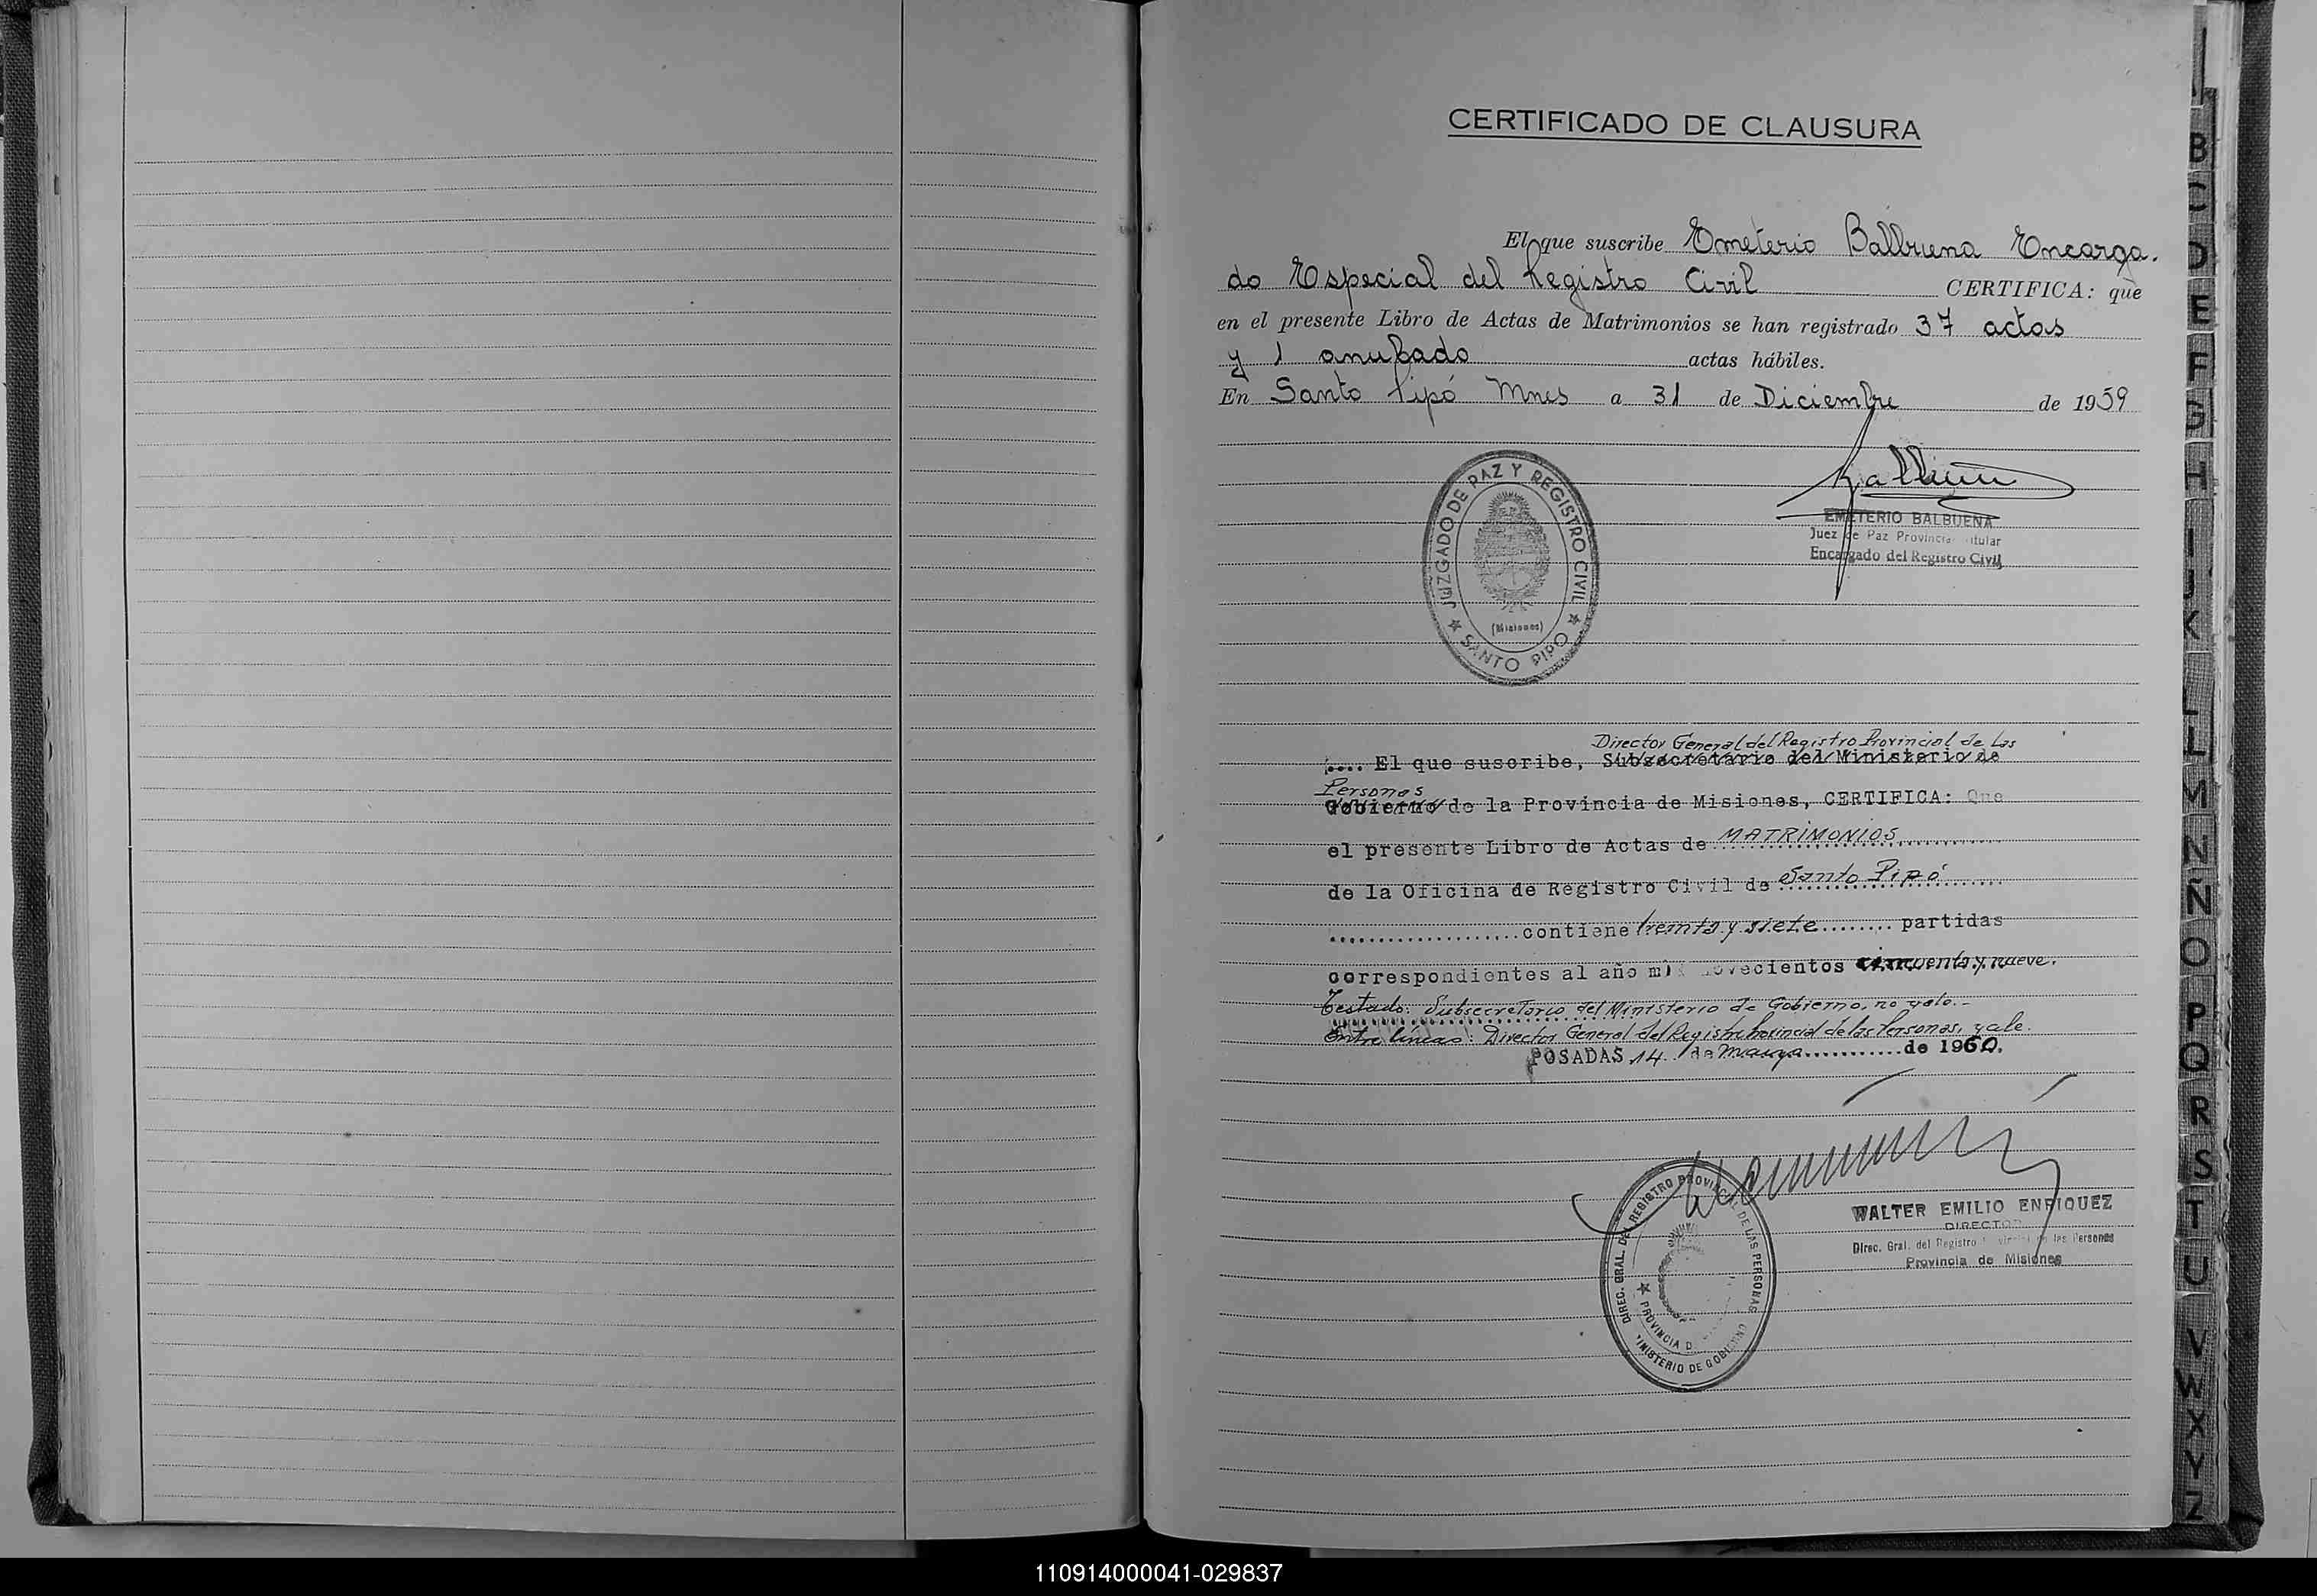 CERTIFICADO DE CLAUSURA
El que suscribe Emeterio Balbuena Encarga-
do Especial del Registro Civil CERTIFICA: que
en el presente Libro de Actas de Matrimonios se han registrado 37 actas
y 1 anulado actas hábiles.
En Santo Pipó Mnes a 31 de Diciembre de 1959
JUZGADO DE PAZ Y REGISTRO CIVIL
(Misiones)
SANTO PIPO
EMETERIO BALBUENA
Juez de Paz Provincial Titular
Encargado del Registro Civil
Director General del Registro Provincial de Las
.... El que suscribe, Subsecretario del Ministerio de
Personas
Gobierno de la Provincia de Misiones, CERTIFICA: Que
el presente Libro de Actas de MATRIMONIOS
de la Oficina de Registro Civil de Santo Pipó
contiene treinta y siete partidas
correspondientes al año mil novecientos cincuenta y nueve.
Testado: Subsecretario del Ministerio de Gobierno, no vale.-
Entre líneas: Director General del Registro Provincial de las Personas, vale.
POSADAS 14 de marzo de 1960.
DIREC. GRAL. DEL REGISTRO PROVINCIAL DE LAS PERSONAS
PROVINCIA D
MINISTERIO DE GOBIERNO
WALTER EMILIO ENRIQUEZ
DIRECTOR
Direc. Gral. del Registro Provincial de las Personas
Provincia de Misiones
B
C
D
E
F
G
H
I
J
K
L
LL
M
N
Ñ
O
P
Q
R
S
T
U
V
W
X
Y
Z
110914000041-029837